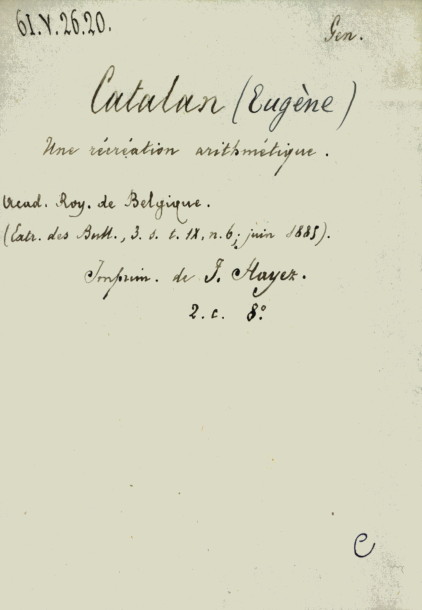 61.V.26.20.
Gen.
Catalan (Eugène)
Une récréation arithmétique.
Acad. Roy. de Belgique.
(Extr. des Bull., 3. s. t. IX, n. 6; juin 1885).
Imprim. de F. Hayez.
2. c. 8°
C